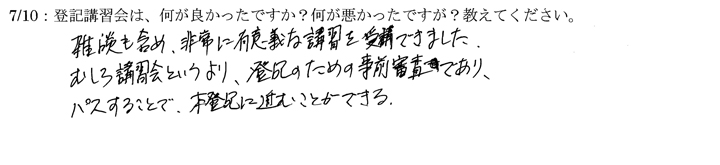 7/10：登記講習会は、何が良かったですか？何が悪かったですが？教えてください。
雑談も含め、非常に有意義な講習を受講できました．
むしろ講習会というより、登記のための事前審査であり、
パスすることで、本登記に進むことができる．